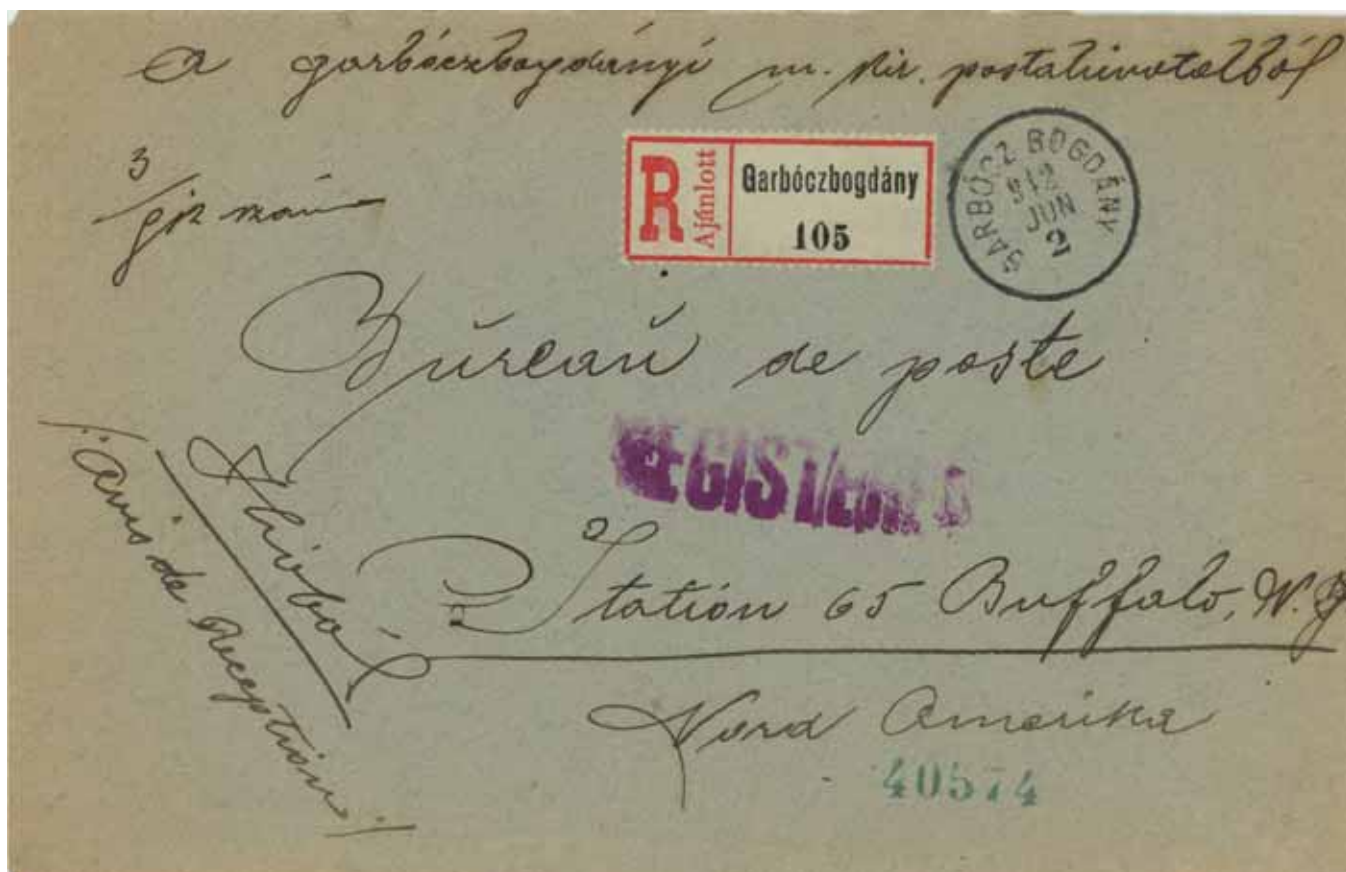 a garbóczbogdányi m. kir. postahivatalból
3
R Ajánlott
Garbóczbogdány
105
GARBÓCZ BOGDÁNY
912
JUN
2
Bŭreaŭ de poste
REGISTERED
/: avis de Reception :/
Station 65 Buffalo, N.Y
Nord Amerika
40574